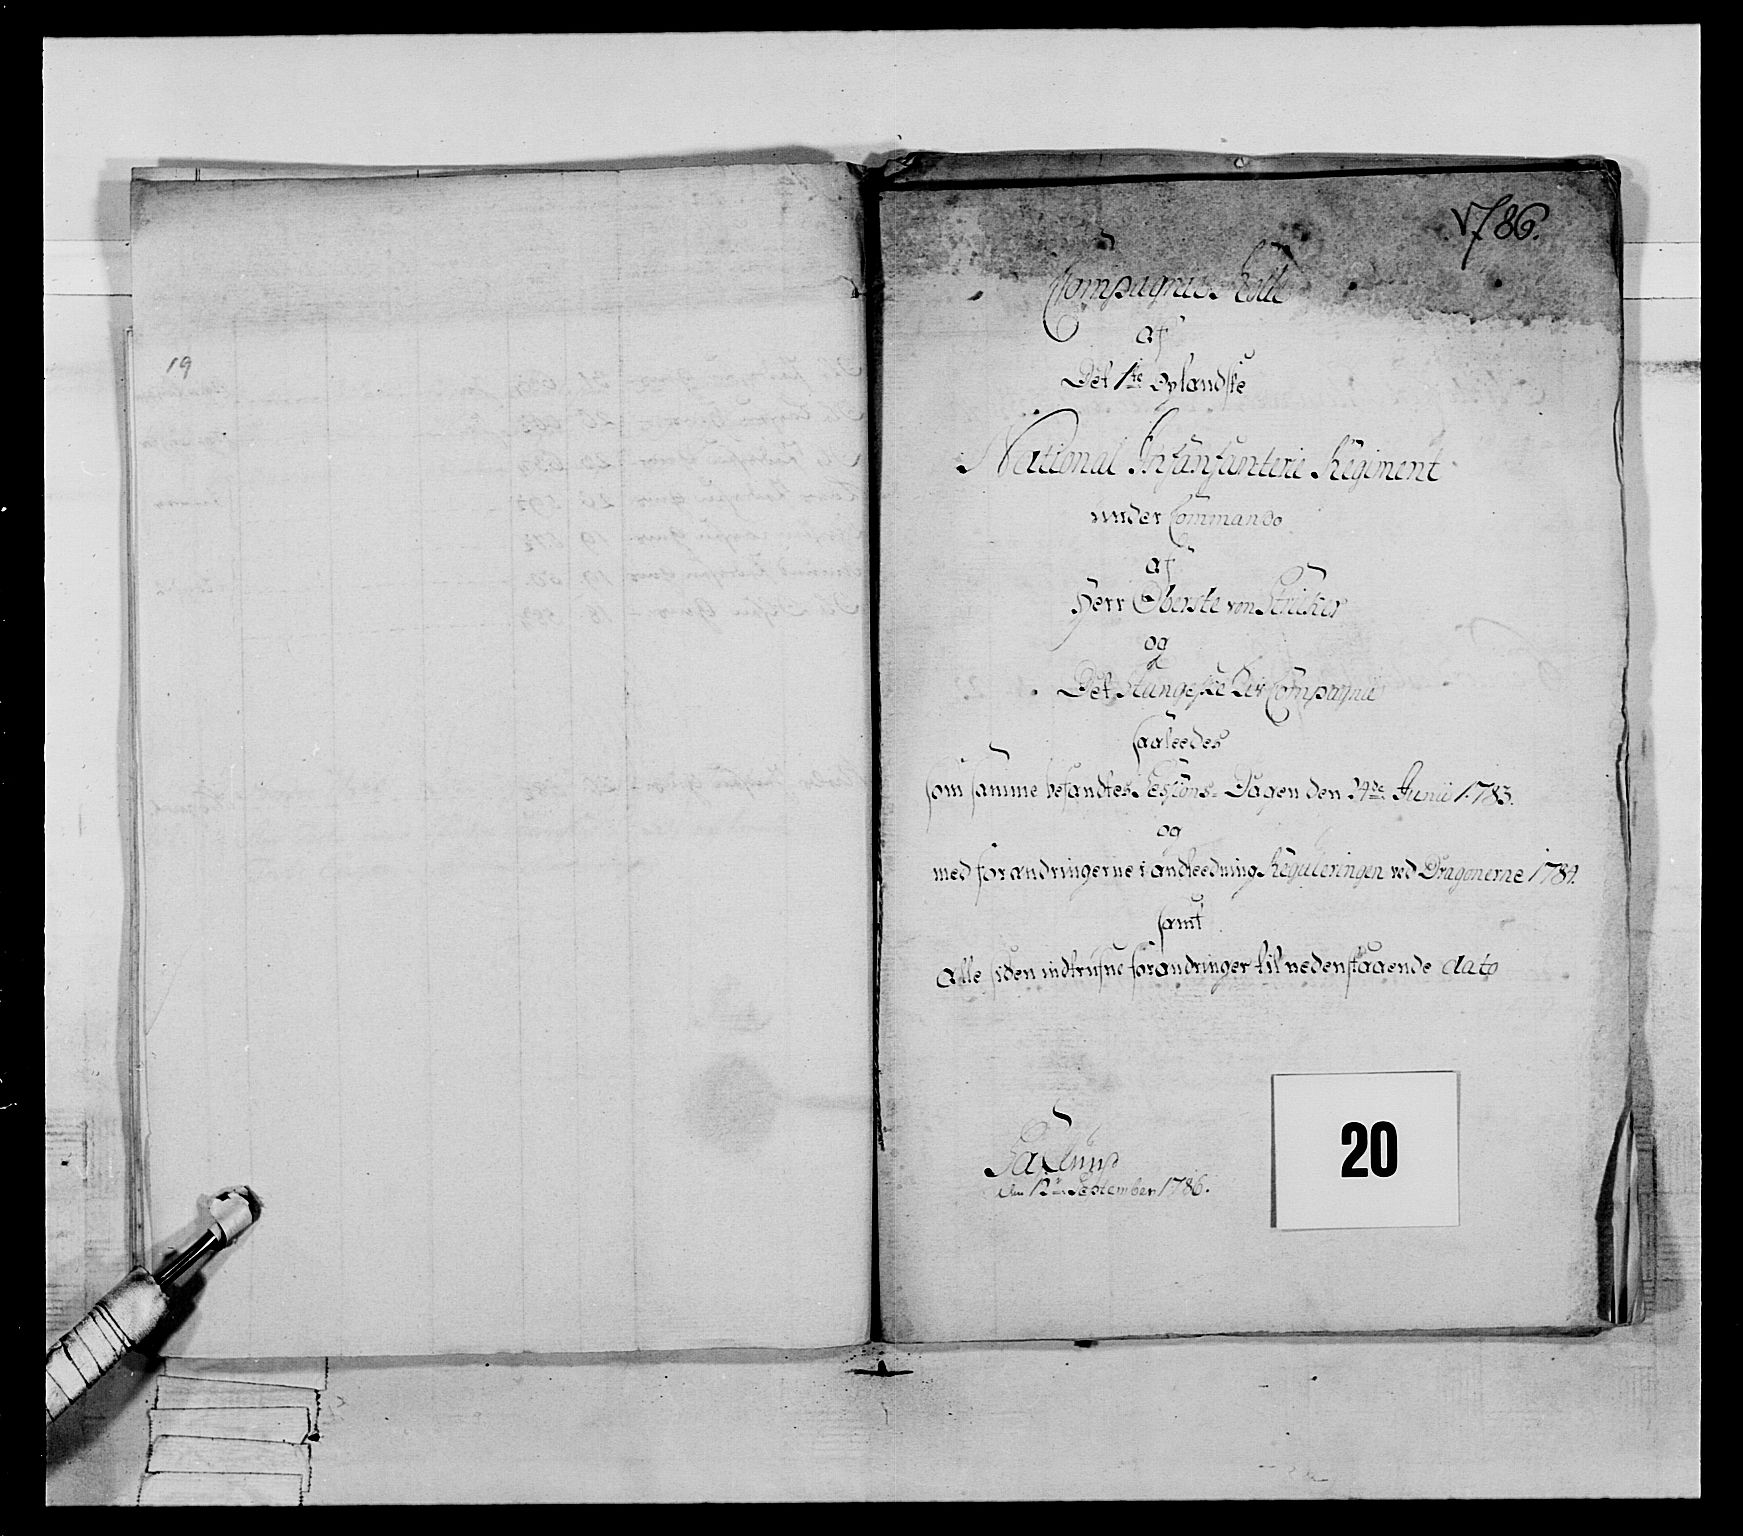 19
1786.
Compagnie Rolle
af
Det 1te Oplandske
National Infanfanterie Regiment
under Commando
af
Herr Oberste von Stricker
og
Det Stangeske Liv Compagnie
saaleedes
som samme befandtes Sessions-Dagen den 24de Junii 1783.
og
med forandringerne i andleedning Reguleringen ved Dragonerne 1784.
samt
alle siden indtrufne forandringer til nedenstaaende dato
den 12te September 1786.
20